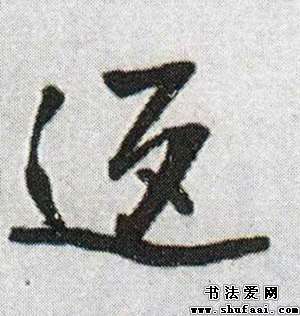 返
书法爱网
www.shufaai.com